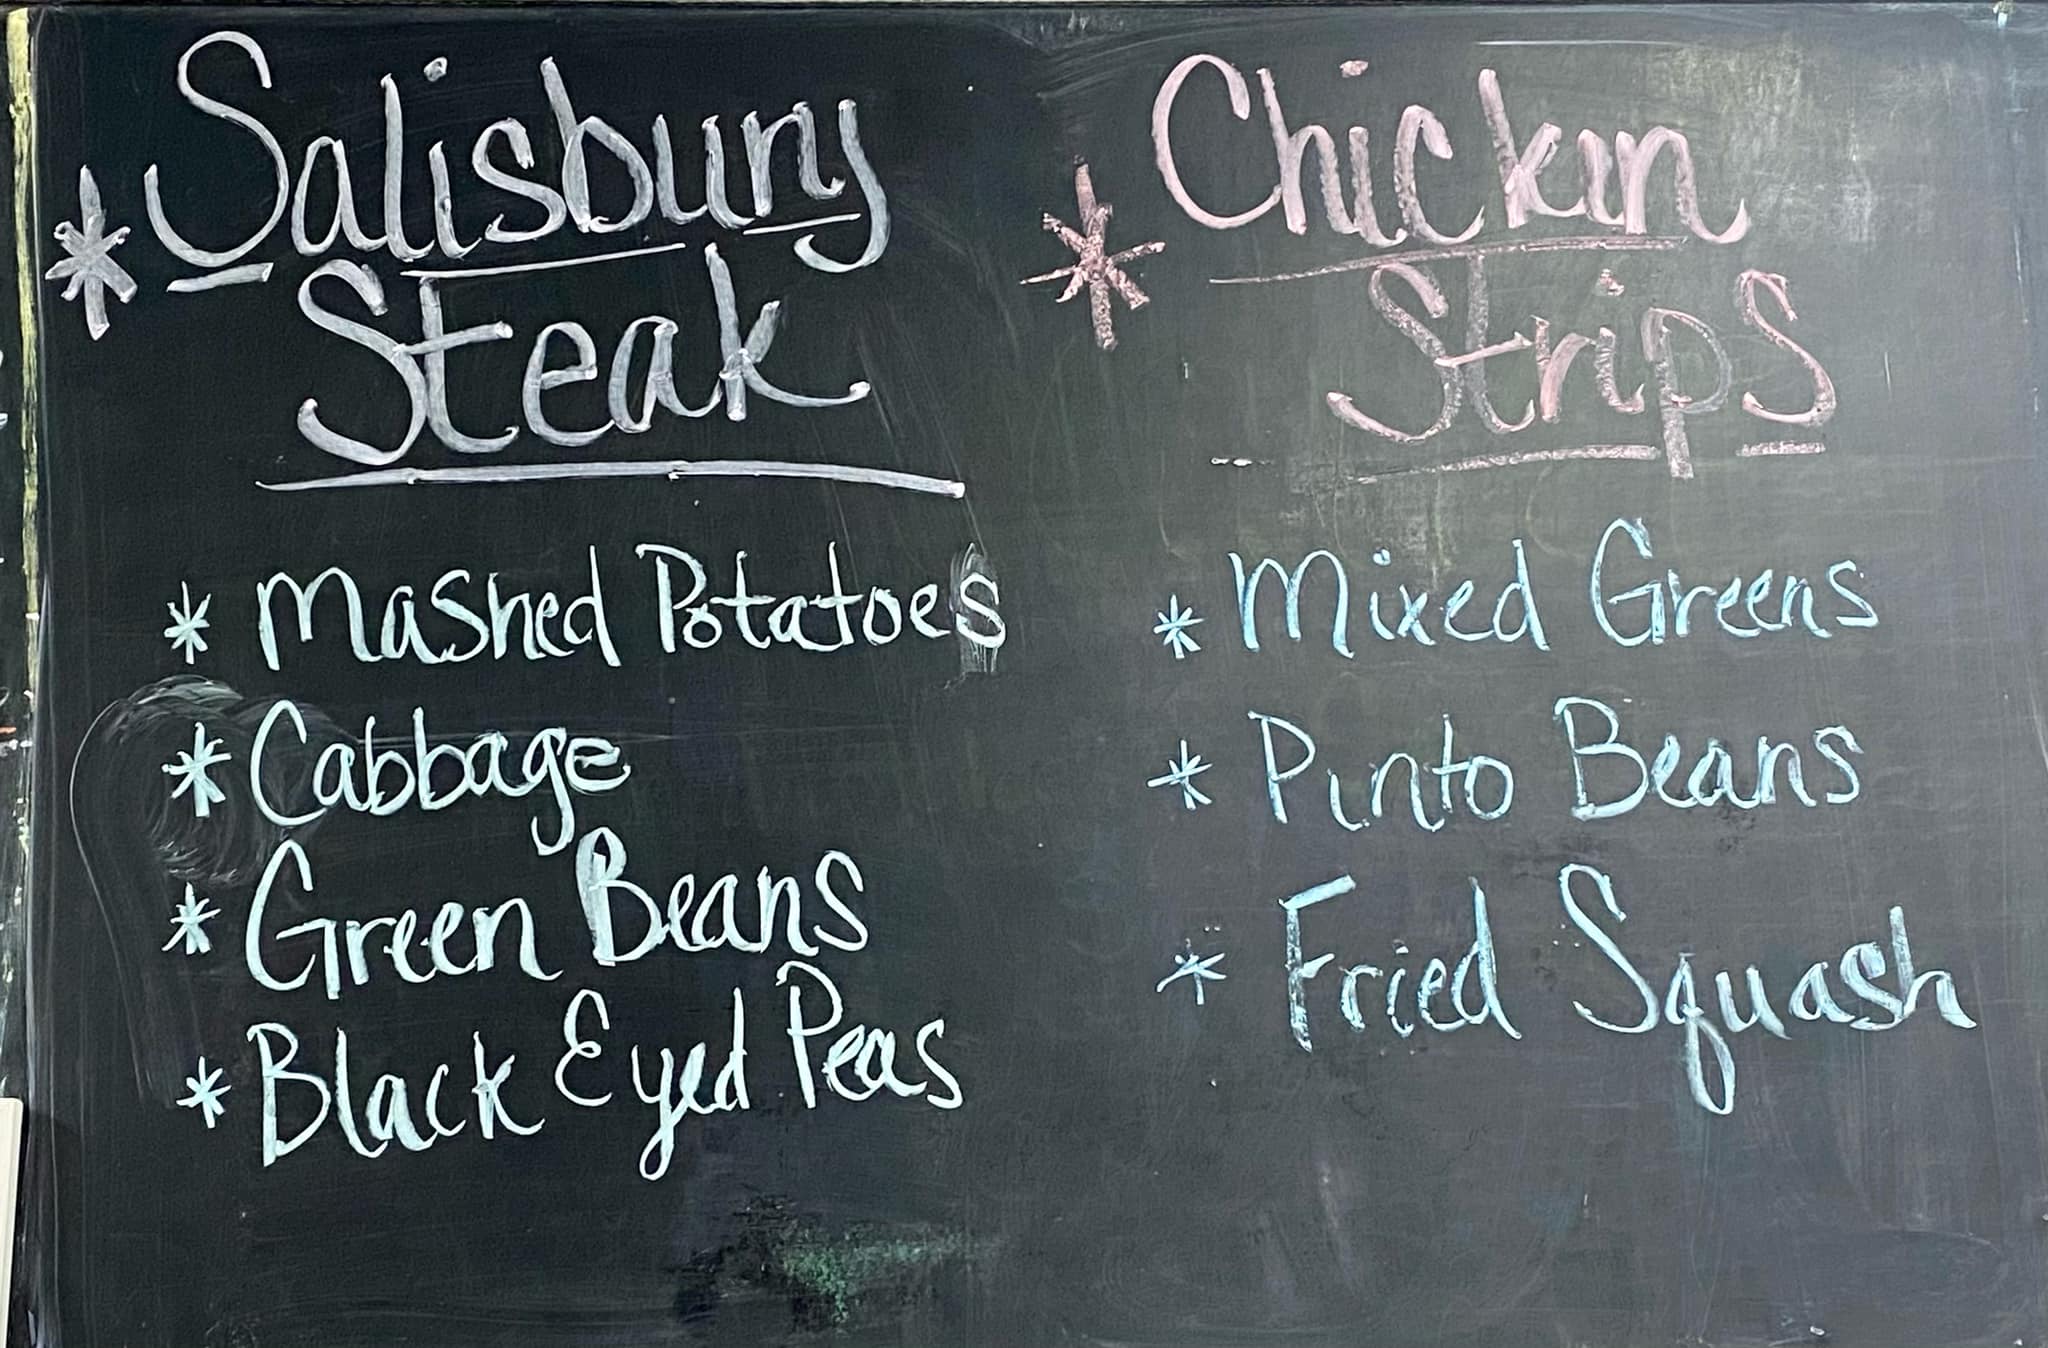 * Salisbury
Steak
* Mashed Potatoes
* Cabbage
* Green Beans
* Black Eyed Peas
* Chicken
Strips
* Mixed Greens
* Pinto Beans
* Fried Squash